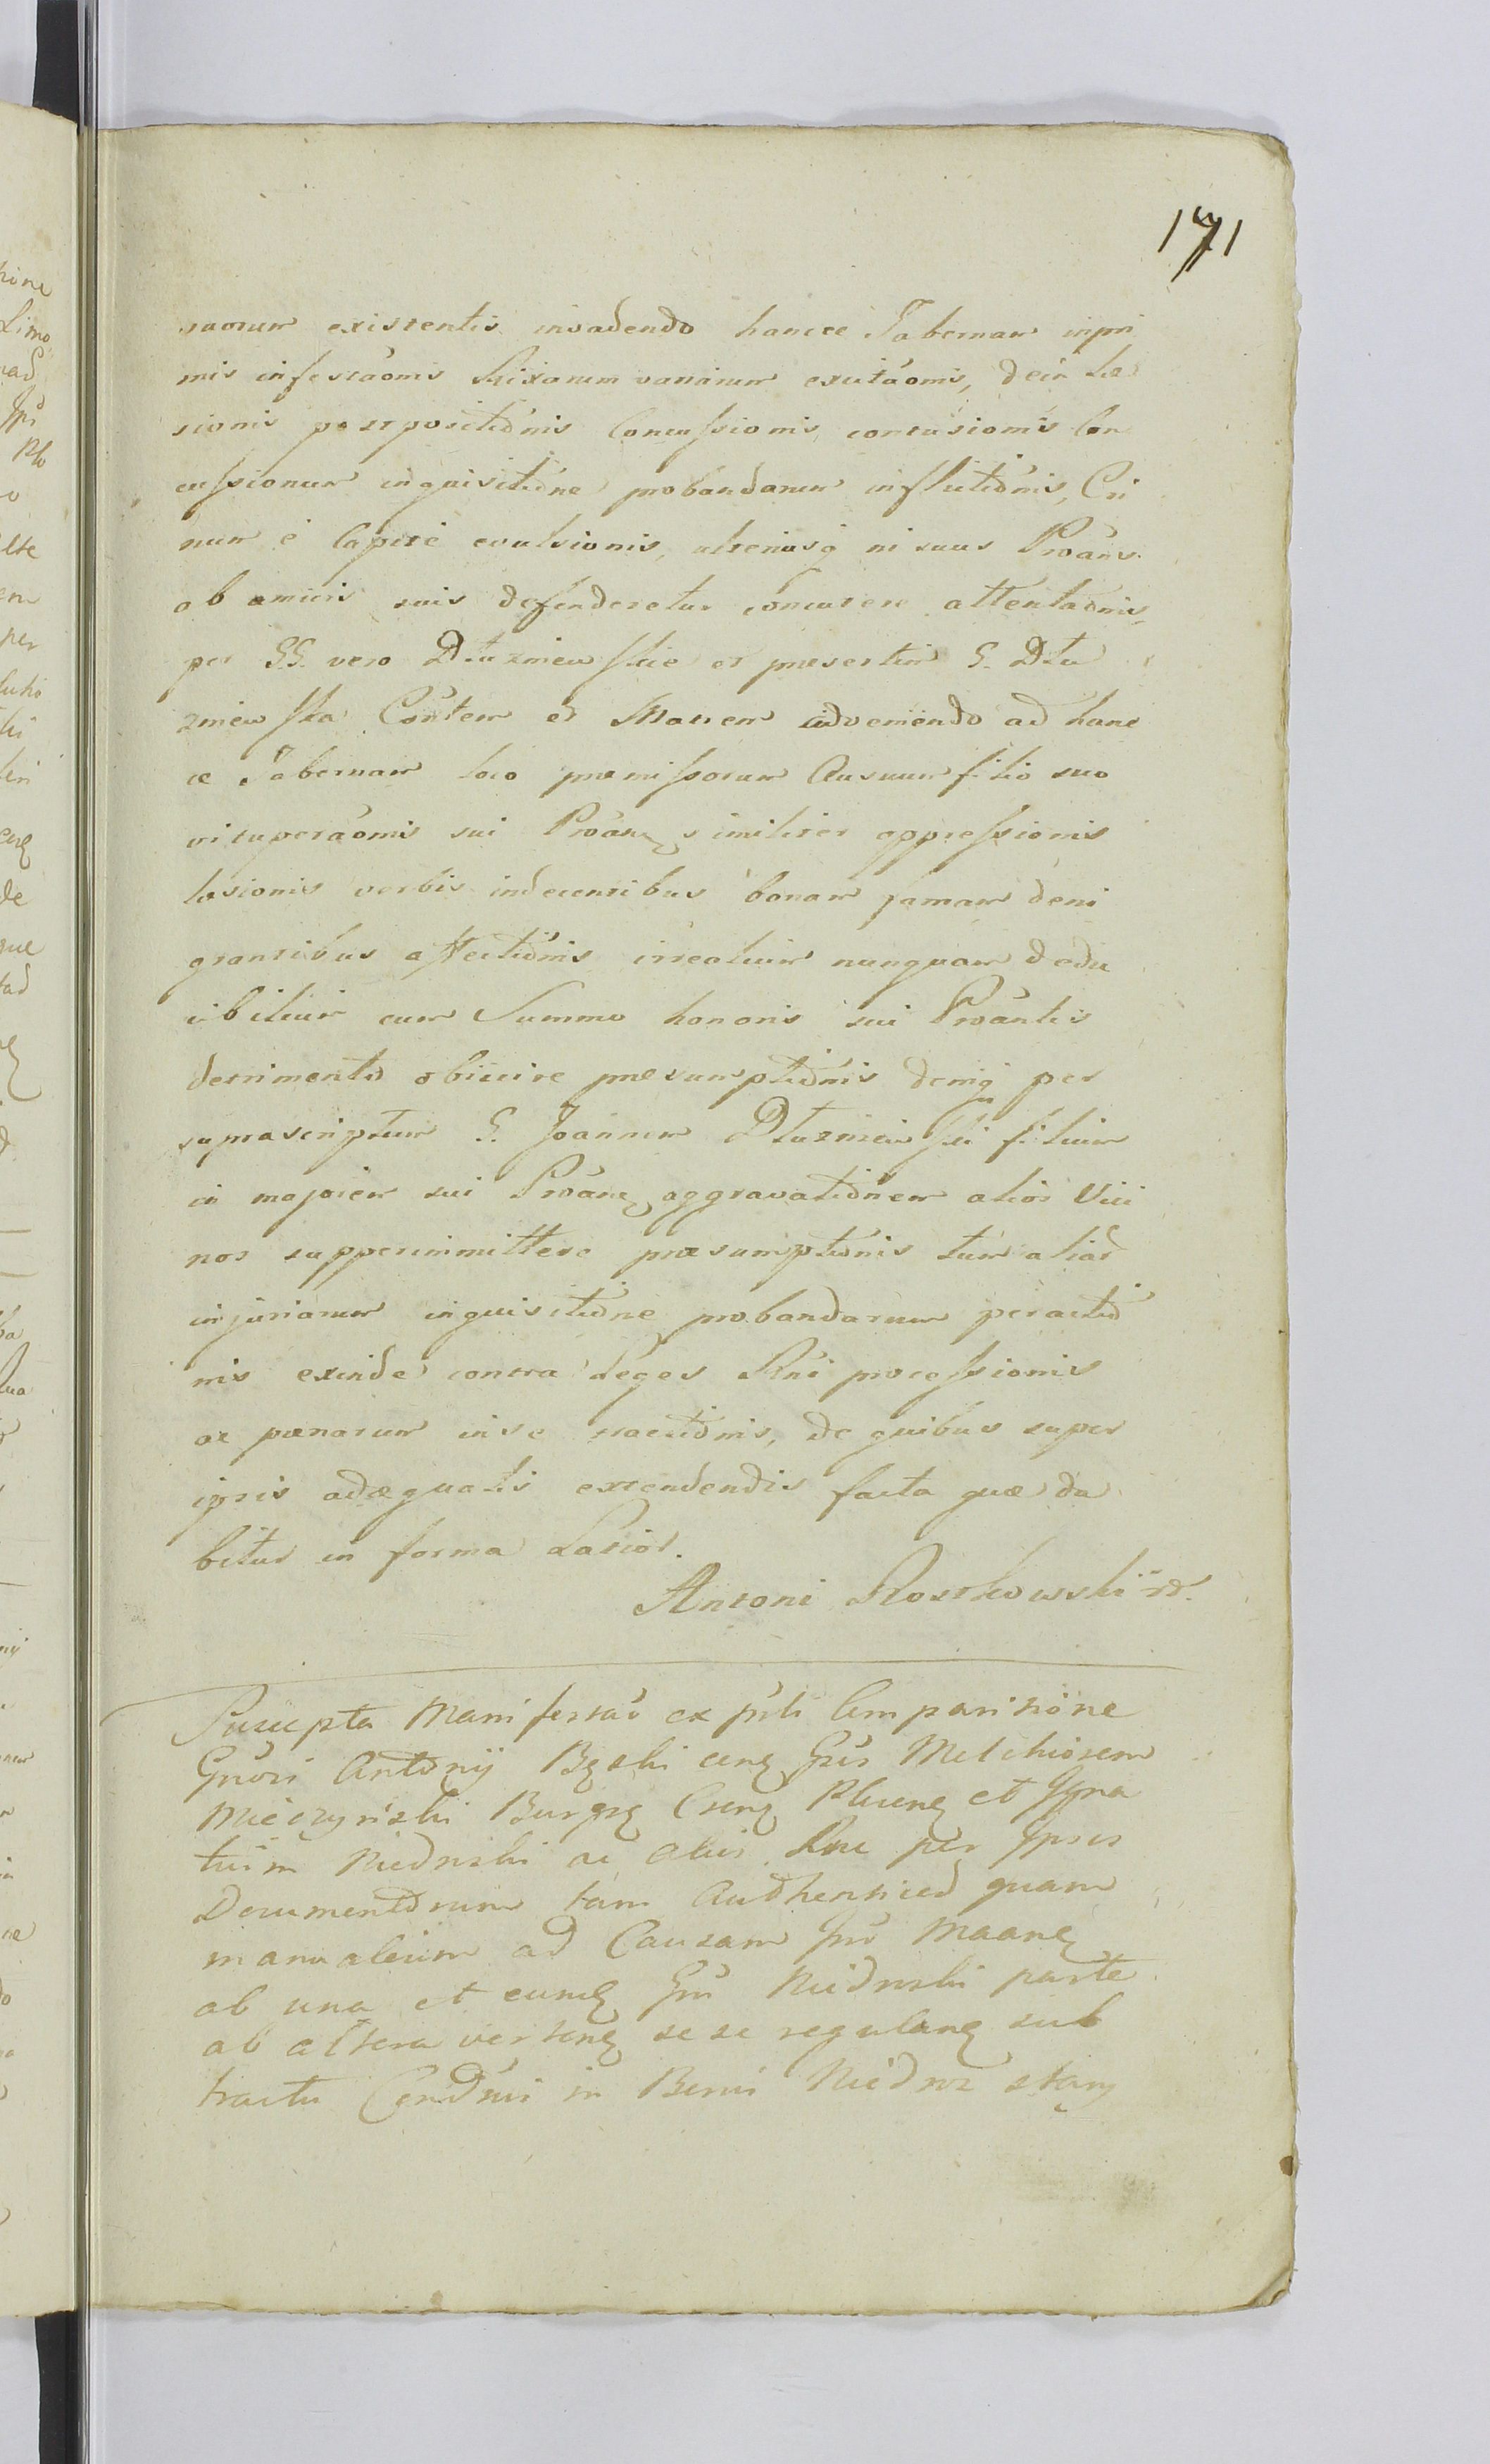 171
suorum existentis invadendo hancce Tabernam inpri
mis infestaōnis Rixarum variarum excitaōnis, dein Læ
sionis postpositiōnis Concussionis, contusionis Con
cussionum inquisitiōne probandarum inflictiōnis, Cri
nium è Capite evulsionis, ulteriusq̃ ni suus Proāns
ab amicis suis defenderetur concutere attentaōnis,
per GG. vero Dłuzniewskie et præsertim G. Dłu
zniewska Cōntem et Matrem adveniendo ad hanc
ce Tabernam loco præmissorum Ausuum filio suo
vituperaōnis sui Proānt similiter oppressionis
læsionis verbis indecentibus bonam famam deni
grantibus affectiōnis irrealium nunquam dedu
cibilium cum Summo honoris sui Proāntis
detrimento obiicire præsumptiōnis deniq̃ per
suprascriptum G. Joannem Dłuzniewski filium
in majorem sui Proānt aggravatiōnem alios Vici
nos supperimmittere præsumptiōnis tum aliar̃
injuriarum inquisitiōne probandarum peractiō
nis exinde contra Leges Rñi processionis
ac pœnarum in se tractiōnis, de quibus super
ipsis adæquatis extendendis facta quæ da
bitur in forma Latior.
Antoni Rostkowski
Suscepta Manifestaō ex pñti Comparitiōne
Gñosi Antōnij Bęski
Mieczynski Burgr
tium ac aliis per Ipsos
Documentōrum tam Authenticor̃ quam
manualium ad Causam
ab una et parte
ab altera vertent sese regulant sub
tractu Conđni in Bonis